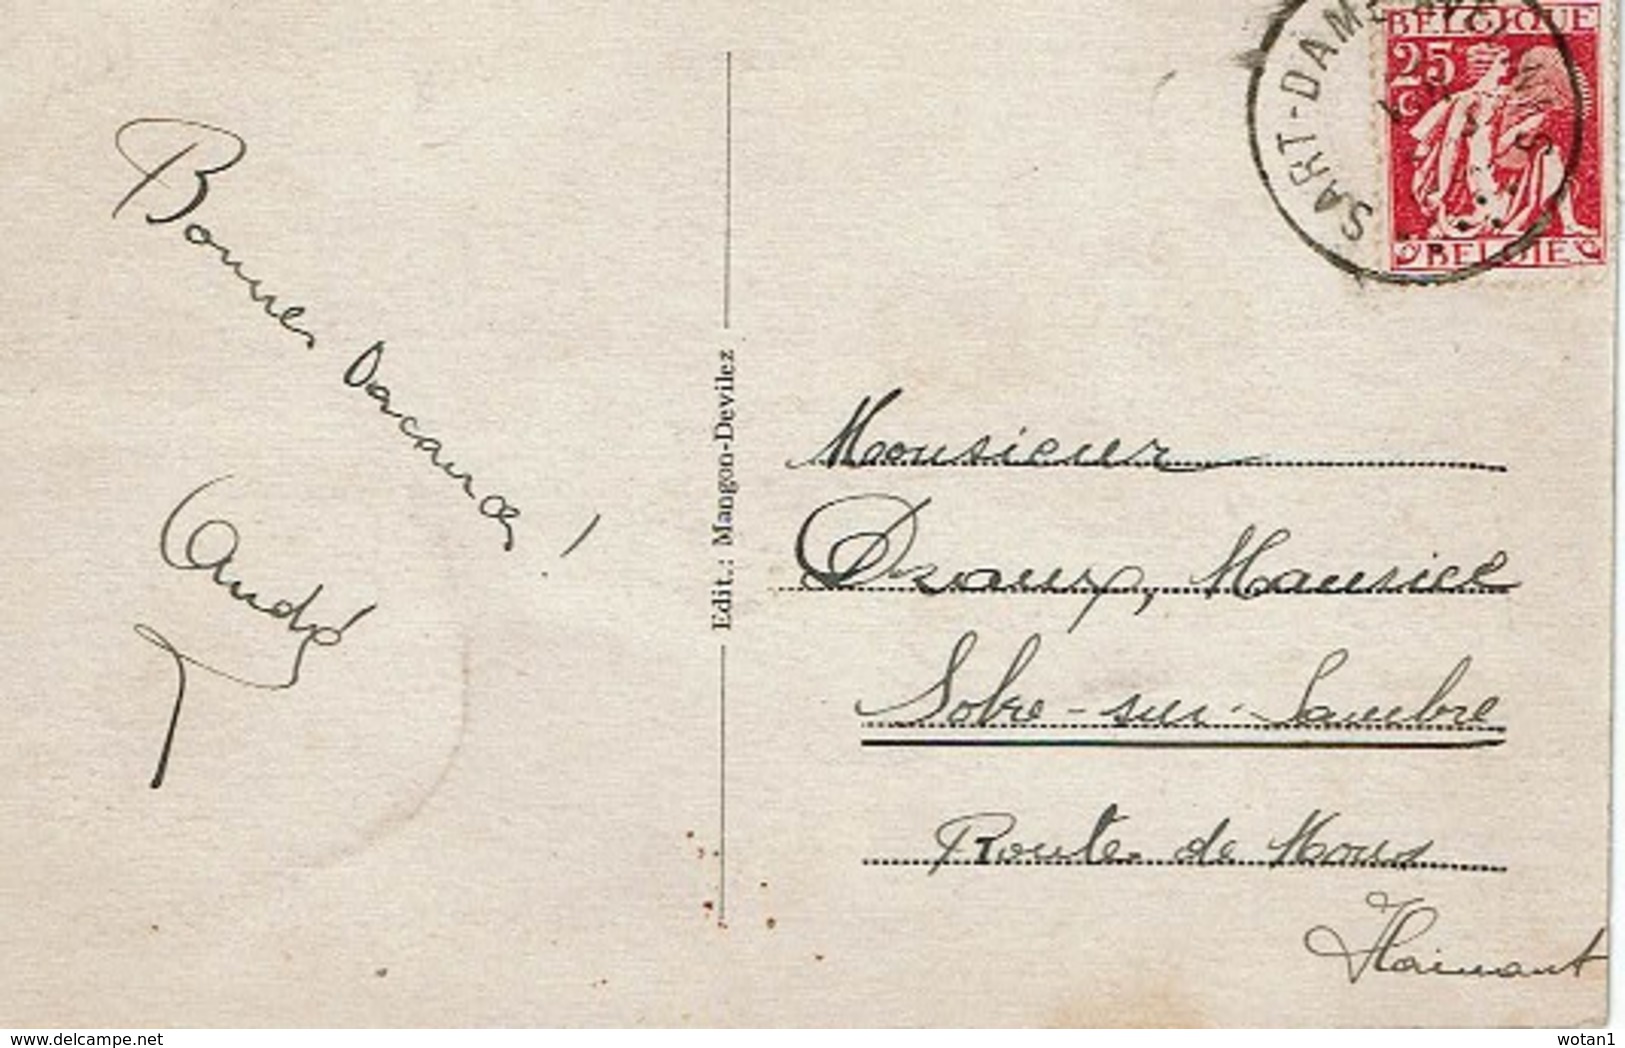 Bonnes Vacances !
André
Edit.: Mangon-Devilez
SART-DAME-AVELINES
BELGIQUE
25
C
BELGIE
Monsieur
Draux, Maurice
Solre-sur-Sambre
Route de Mons
Hainaut
www.delcampe.net
wotan1